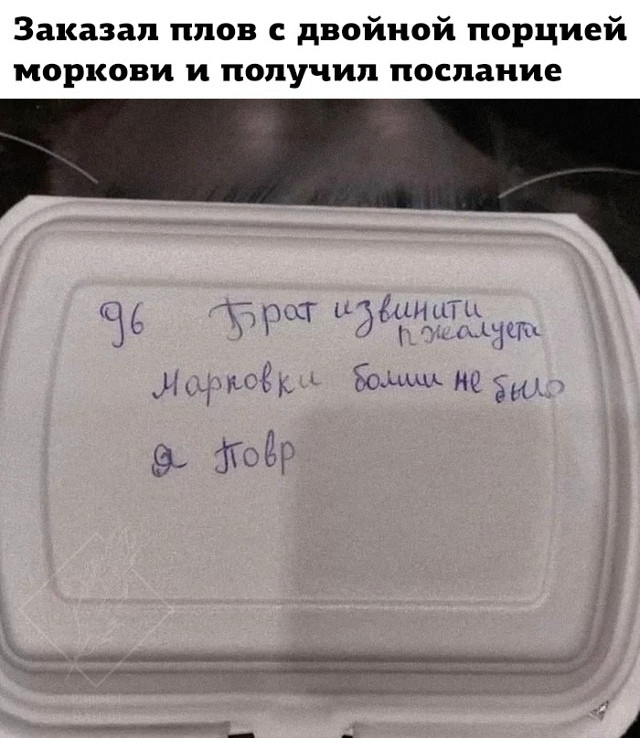 Заказал плов с двойной порцией
моркови и получил послание
96 Брат извинити
пжалуста
Марковки болши не было
я Повр